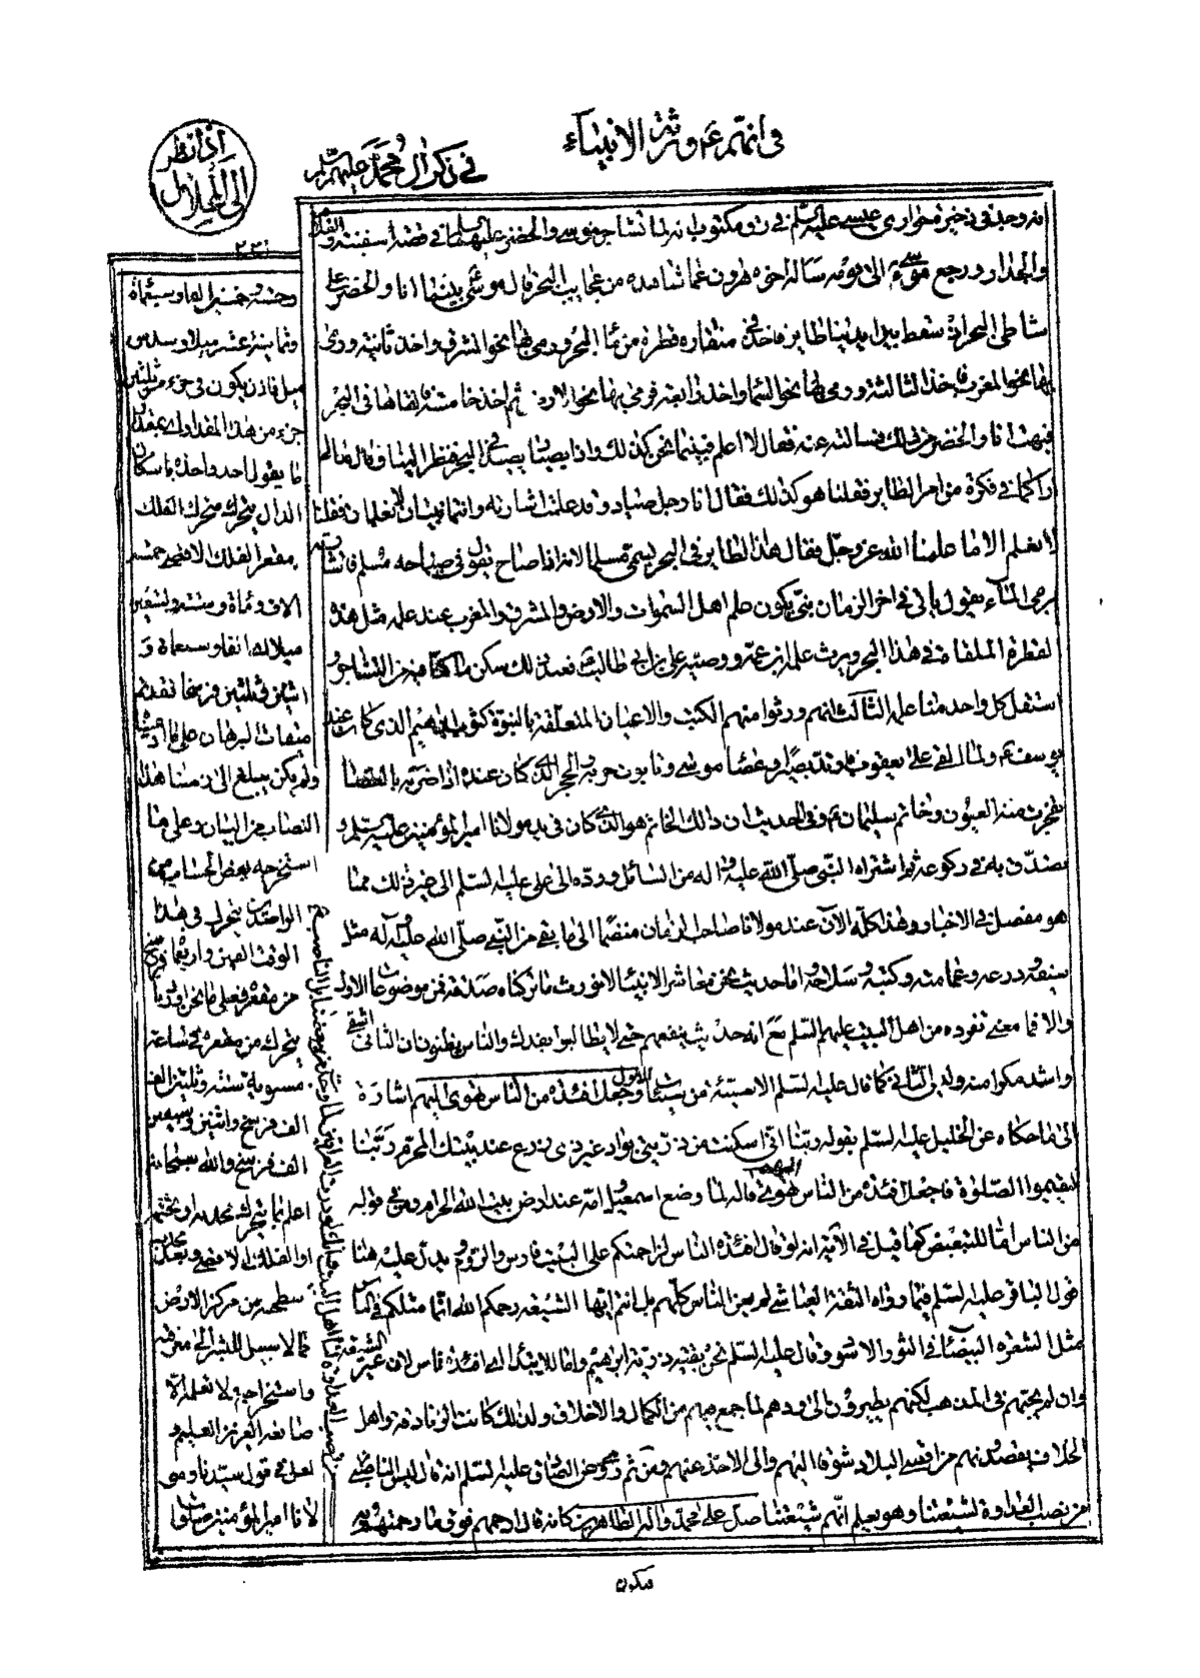 في انهم ع ورثة الانبياء
في ذكر آل محمد عليهم السلم
اذا نظر الى الهلال
انه وجد في ذخيرة حواري عيسى عليه السلم في رق مكتوب انه لما تشاجر موسى والخضر عليهما السلم في قصة السفينة والغلام
والجدار ورجع موسى الى قومه سأله اخوه هرون عما شاهده من عجايب البحر قال موسى بينما انا والخضر على
شاطئ البحر اذ سقط بين ايدينا طاير فاخذ في منقاره قطرة من ماء البحر ورمى بها نحو المشرق واخذ ثانية ورمى
بها نحو المغرب فاخذ الثالثة ورمى بها نحو السماء واخذ رابعة فرمى بها نحو الارض ثم اخذ خامسة فالقاها في البحر
فبهت انا والخضر من ذلك فسالته عنه فقال لا اعلم فبينما نحن كذلك واذا بصياد يصيد في البحر فنظر الينا وقال مالي
اراكما في فكرة من امر الطاير فقلنا هو كذلك فقال انا رجل صياد وقد علمت اشارته وانتما نبيان لا تعلمان فقلنا
لا نعلم الا ما علمنا الله عز وجل فقال هذا الطاير في البحر يسمى مسلما لانه اذا صاح يقول في صياحه مسلم فاشارته
برمي الماء يقول ياتي في اخر الزمان نبي يكون علم اهل السموات والارض والمشرق والمغرب عند علمه مثل هذه
القطرة الملقاة في هذا البحر ويرث علمه ابن عمه ووصيه علي بن ابي طالب فعند ذلك سكن ما كنا فيه من التشاجر و
استقل كل واحد منا علمه الثالث انهم ورثوا منهم الكتب والاعيان المتعلقة بالنبوة كثوب ابراهيم الذي كان عند
يوسف ع ولما القي على يعقوب ارتد بصيرا وعصا موسى وتابوت حربه والحجر الذي كان عنده اذا ضربه بالعصا
يتفجرت منه العيون وخاتم سليمان ع وفي الحديث ان ذلك الخاتم هو الذي كان في يد مولانا امير المؤمنين عليه السلم و
تصدق به في ركوعه ثم اشتراه النبي صلى الله عليه واله من السائل ورده الى علي عليه السلم الى غير ذلك مما
هو مفصل في الاخبار وهذا كله الآن عند مولانا صاحب الزمان منضما الى ما بقي من النبي صلى الله عليه وآله مثل
سيفه ودرعه وعمامته وكتبه وسلاحه واما حديث نحن معاشر الانبياء لا نورث ما تركناه صدقة فمن موضوعات الاول
والا فما معنى تفرده من اهل البيت عليهم السلم مع انه حديث ينفعهم حتى لا يطالبوا بفدك والناس يظنون ان الثاني اشقى
واشد مكرا منه ولم ياتي الثاني كما قال عليه السلم الا سيئة من سيئات الاول وجعل افئدة من الناس تهوى اليهم اشارة
الى ما حكاه عن الخليل عليه السلم بقوله ربنا اني اسكنت من ذريتي بواد غير ذي زرع عند بيتك المحرم ربنا
ليقيموا الصلوة فاجعل افئدة من الناس تهوي اليهم قاله لما وضع اسمعيل وامه عند ارض بيت الله الحرام ومن في قوله
من الناس اما للتبعيض كما قيل في الآية انه لو قال افئدة الناس لزاحمتكم على البيت فارس والروم ويدل عليه هنا
قول الباقر عليه السلم فيما رواه الثقة العياشي لم يعن الناس كلهم بل انتم ايها الشيعة رحمكم الله انما مثلكم في الناس
مثل الشعرة البيضاء في الثور الاسود وقال عليه السلم نحن بقية ذرية ابراهيم واما للابتداء اي افئدة ناس لان غير الشيعة
وان لم يحبهم في المذهب لكنهم يطيرون الى ودهم لما جمع فيهم من الكمال والاخلاق ولذلك كانت الزنادقة واهل
الخلاف يقصدونهم من اقصى البلاد شوقا اليهم والى الاخذ عنهم ومن ثم روي عن الصادق عليه السلم انه قال ليس الناصبي
من نصب العداوة لشيعتنا وهو يعلم انهم شيعتنا صل على محمد واله الطاهرين كانه قال ارحمهم فوق ما رحمتهم به
وخمسة خمسين الفا وسبعمائة
وثمانية عشر ميلا وسدس
ميل فاذن يكون في جزء من ثلثين
جزء من هذا المقدار اي بمقدار
ما يقول احد واحد باسكان
الدال يتحرك متحرك الفلك
مقعر الفلك الاقصى خمسة
الاف ومأة وستة وتسعين
ميلا الفا وسبعمأة و
اثنين وثلثين فرسخا تقدم
ولم يكن يبلغ الى زمننا هذا
النصاب من البيان وعلى ما
استخرجه بعض الحساب من
الواحد يتحرك في هذا
الوقت الفين واربعمأة فرسخ
من مقعره فعلى ما نحن قد
يتحرك من مقعره في ساعة
مسوية ستة وثلثين الف
الف فرسخ واثنين وسبعين
الف فرسخ والله سبحانه
اعلم بما يتحرك محدبه او يختم
او الفلك الاقصى وبعد محدب
سطحه من مركز الارض
مما لا سبيل للبشر الى معرفته
واستخراجه ولا نعلمه الا
صانعه العزيز العليم و
لعل في قول سيدنا ومو
لانا امير المؤمنين صلوات
فيكون